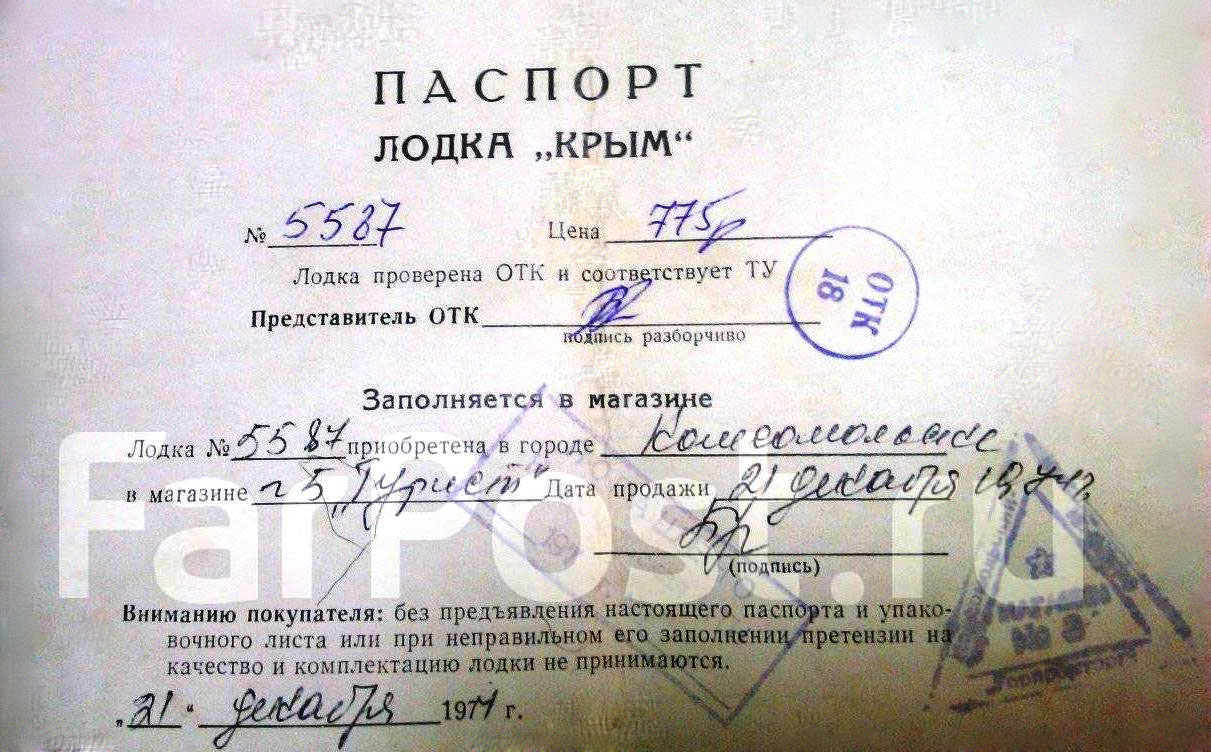 ПАСПОРТ
ЛОДКА „КРЫМ“
№ 5587 Цена 775р
Лодка проверена ОТК и соответствует ТУ
ОТК
18
Представитель ОТК
подпись разборчиво
Заполняется в магазине
Лодка № 5587 приобретена в городе Комсомольске
в магазине №5 „Турист“ Дата продажи 21 декабря
(подпись)
Вниманию покупателя: без предъявления настоящего паспорта и упако-
вочного листа или при неправильном его заполнении претензии на
качество и комплектацию лодки не принимаются.
МАГАЗИН
№ 5
Горпромторг
„21“ декабря 1971 г.
FarPost.ru